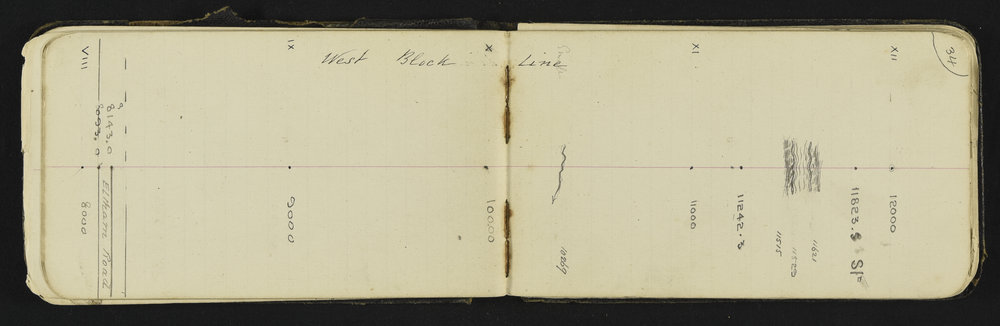 West Block Line
34
VIII
IX
X
XI
XII
8143.0
8093.0
Eltham Road
8000
9000
10000
10269
11000
11242.3
11515
11621
11823.8
12000